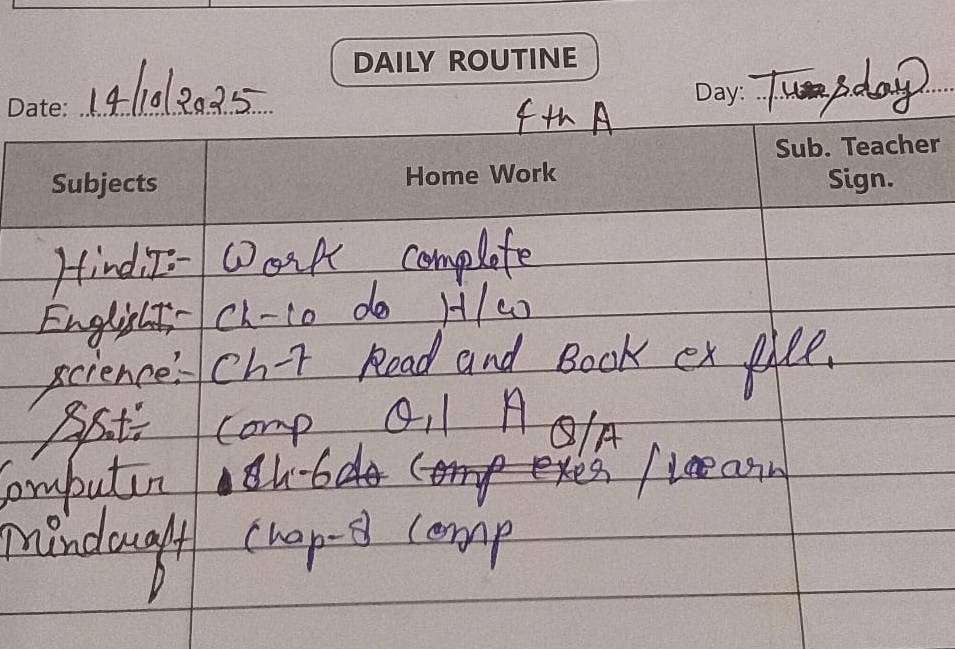 DAILY ROUTINE
Date: 14/10/2025 Day: Tuesday
4th A
Subjects Home Work Sub. Teacher Sign.
Hindi:- Work complete
English:- Ch-10 do H/W
science:- Ch-7 Read and Book ex fill.
S.St:- Comp Q/A
Computer Ch-6 do comp exer / Learn
Mindcraft Chap-8 Comp